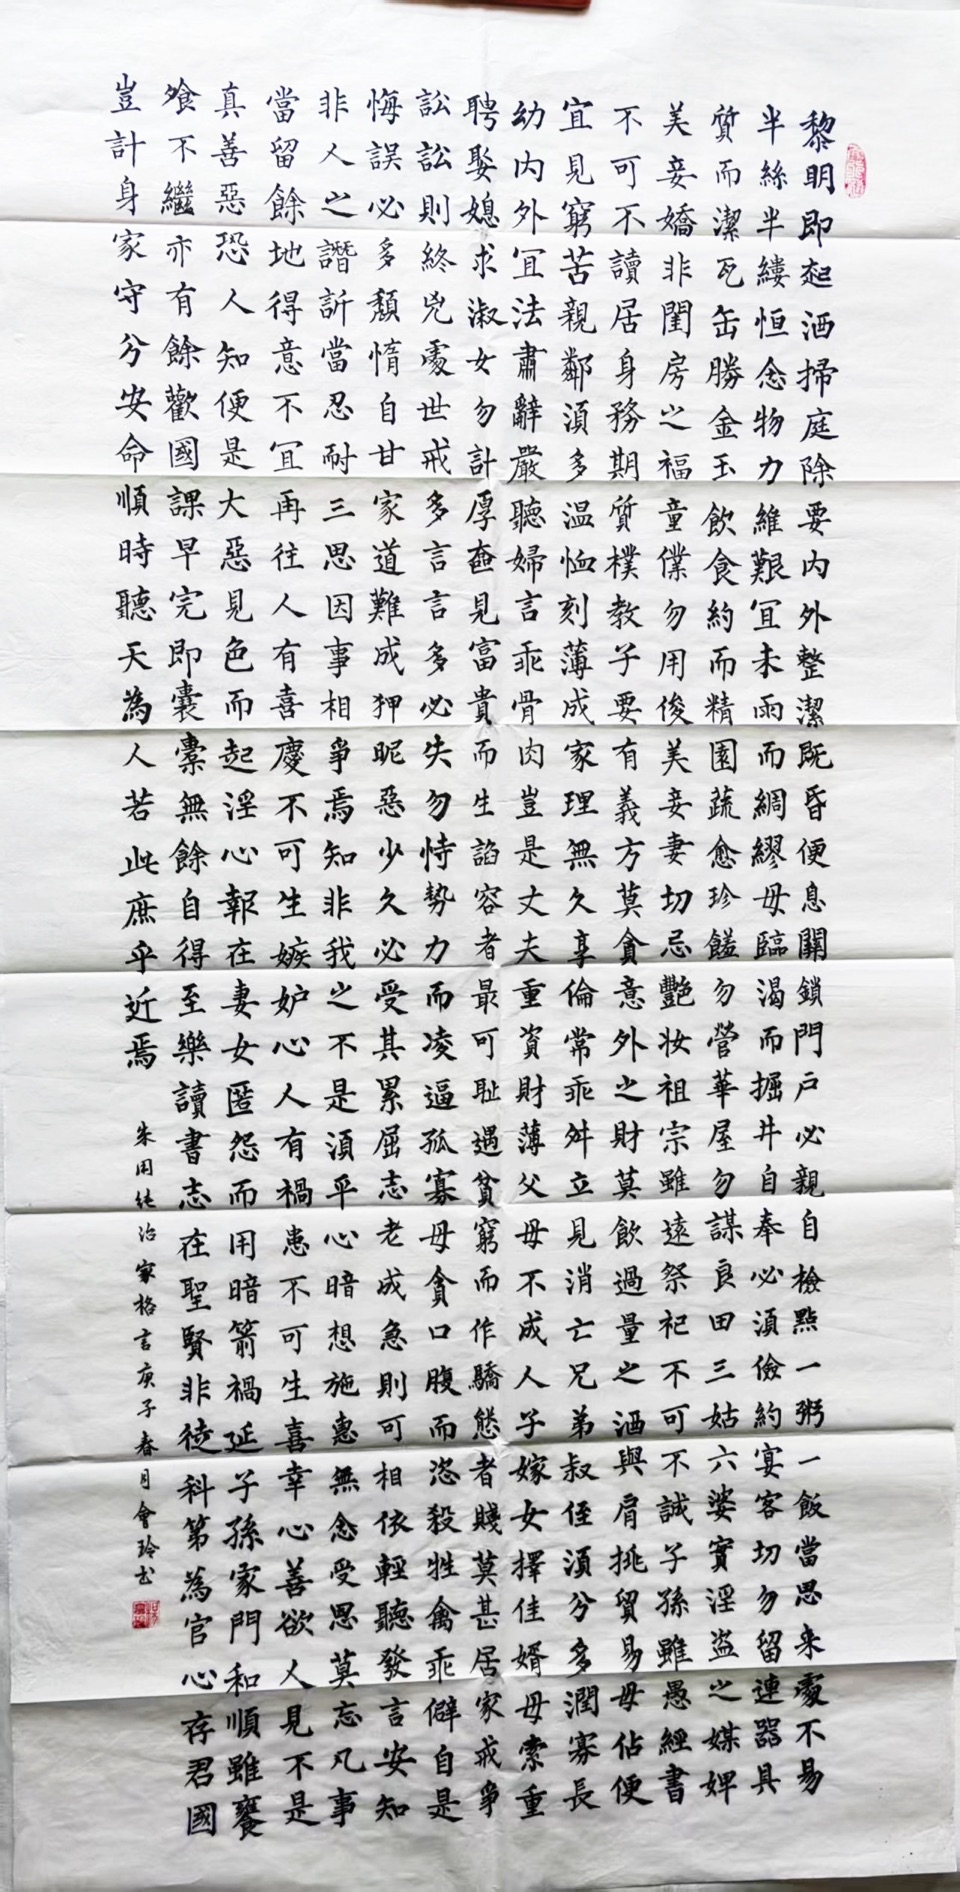 黎明即起洒掃庭除要内外整潔既昏便息關鎖門户必親自檢點一粥一飯當思来處不易
半絲半縷恒念物力維艱宜未雨而綢繆毋臨渴而掘井自奉必須儉約宴客切勿留連器具
質而潔瓦缶勝金玉飲食約而精園蔬愈珍饈勿營華屋勿謀良田三姑六婆實淫盗之媒婢
美妾嬌非閨房之福童僕勿用俊美妾妻切忌艷妝祖宗雖遠祭祀不可不誠子孫雖愚經書
不可不讀居身務期質樸教子要有義方莫貪意外之財莫飲過量之酒與肩挑貿易毋佔便
宜見窮苦親鄰須多温恤刻薄成家理無久享倫常乖舛立見消亡兄弟叔侄須分多潤寡長
幼内外宜法肅辭嚴聽婦言乖骨肉豈是丈夫重資財薄父母不成人子嫁女擇佳婿毋索重
聘娶媳求淑女勿計厚奩見富貴而生諂容者最可耻遇貧窮而作驕態者賤莫甚居家戒爭
訟訟則終兇處世戒多言言多必失勿恃勢力而凌逼孤寡毋貪口腹而恣殺牲禽乖僻自是
悔誤必多頽惰自甘家道難成狎昵惡少久必受其累屈志老成急則可相依輕聽發言安知
非人之譖訴當忍耐三思因事相爭焉知非我之不是須平心暗想施惠無念受恩莫忘凡事
當留餘地得意不宜再往人有喜慶不可生嫉妒心人有禍患不可生喜幸心善欲人見不是
真善惡恐人知便是大惡見色而起淫心報在妻女匿怨而用暗箭禍延子孫家門和順雖饔
飧不繼亦有餘歡國課早完即囊橐無餘自得至樂讀書志在聖賢非徒科第為官心存君國
豈計身家守分安命順時聽天為人若此庶乎近焉
朱用純治家格言庚子春月會玲书